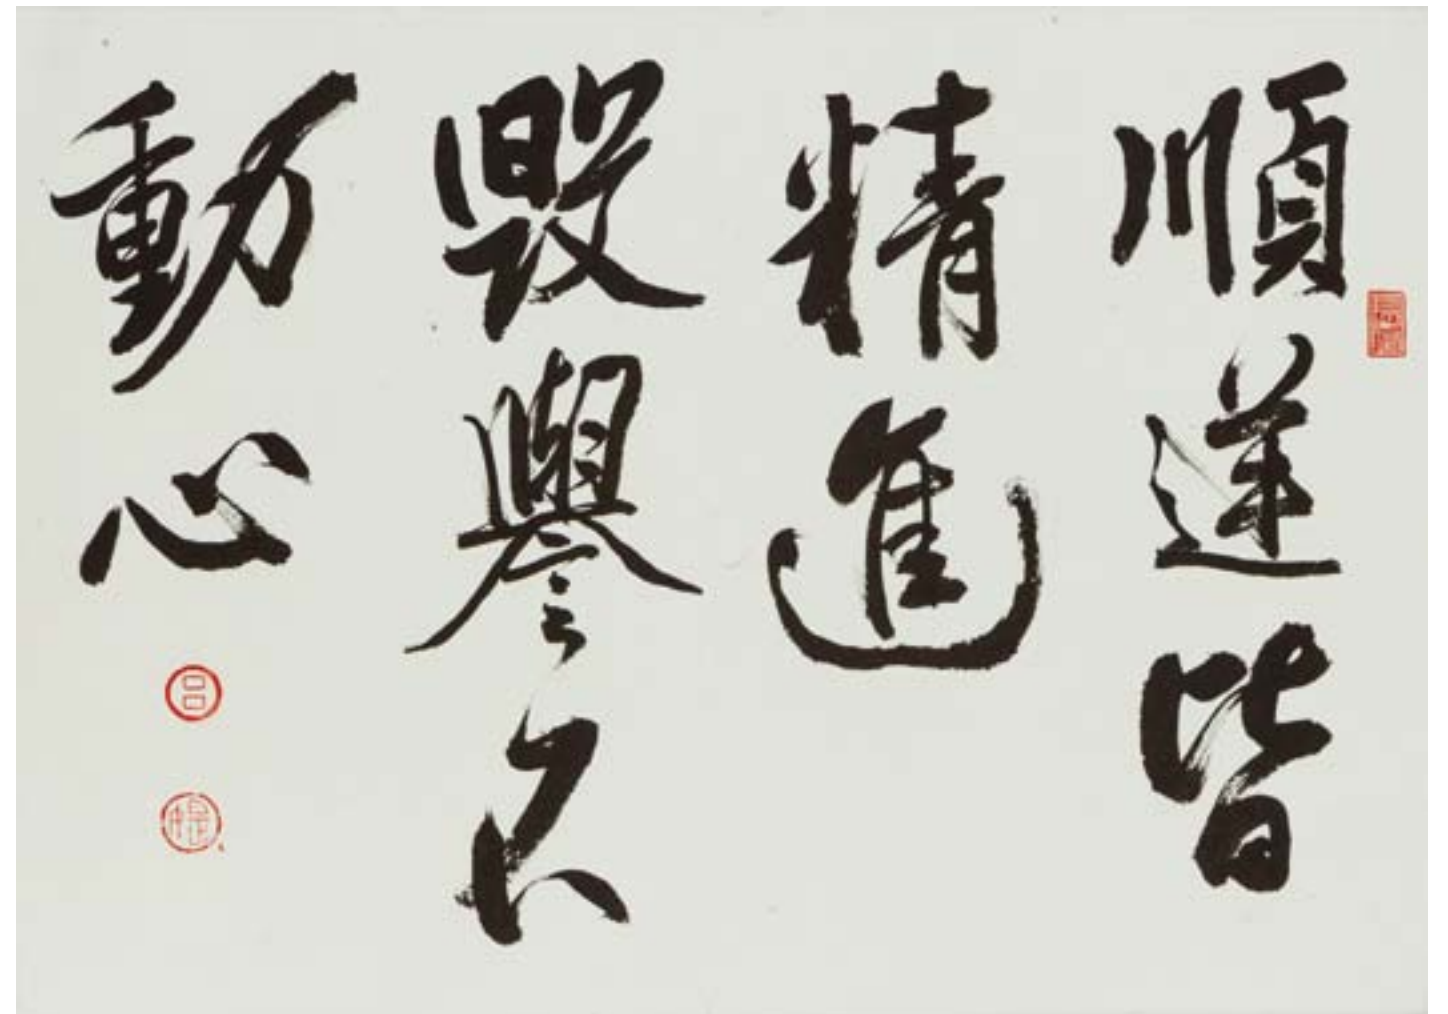 順逆皆
精進
毀譽不
動心